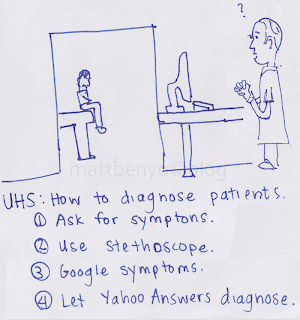 ?
mattbenyo@blog
UHS: How to diagnose patients.
① Ask for symptons.
② Use stethoscope.
③ Google symptoms.
④ Let Yahoo Answers diagnose.